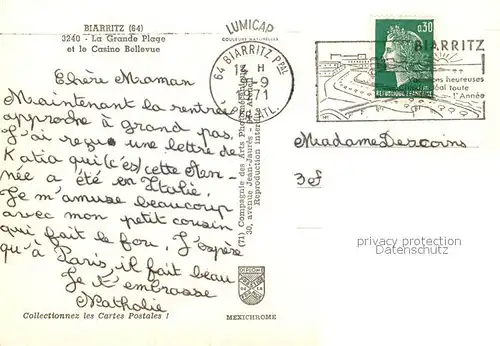 BIARRITZ (64)
3240 - La Grande Plage
et le Casino Bellevue
LUMICAP
COULEURS NATURELLES
64 BIARRITZ PPAL
13 H
9-9
1971
PYR. ATL.
0,30
REPUBLIQUE FRANCAISE
BIARRITZ
heureuses
toute
l'Année
Chère Maman
Maintenant la rentrée
approche à grand pas.
J'ai reçue une lettre de
Katia qui (c'es) cette An-
née a été en Italie.
Je m'amuse beaucoup
avec mon petit cousin
qui fait le fou. J'espère
qu'à Paris, il fait beau
Je t'embrasse
Nathalie
Collectionnez les Cartes Postales !
(71) Compagnie des Arts Photomécaniques
30, avenue Jean-Jaurès -
Reproduction interdite
MEXICHROME
Madame Descoins
privacy protection
Datenschutz